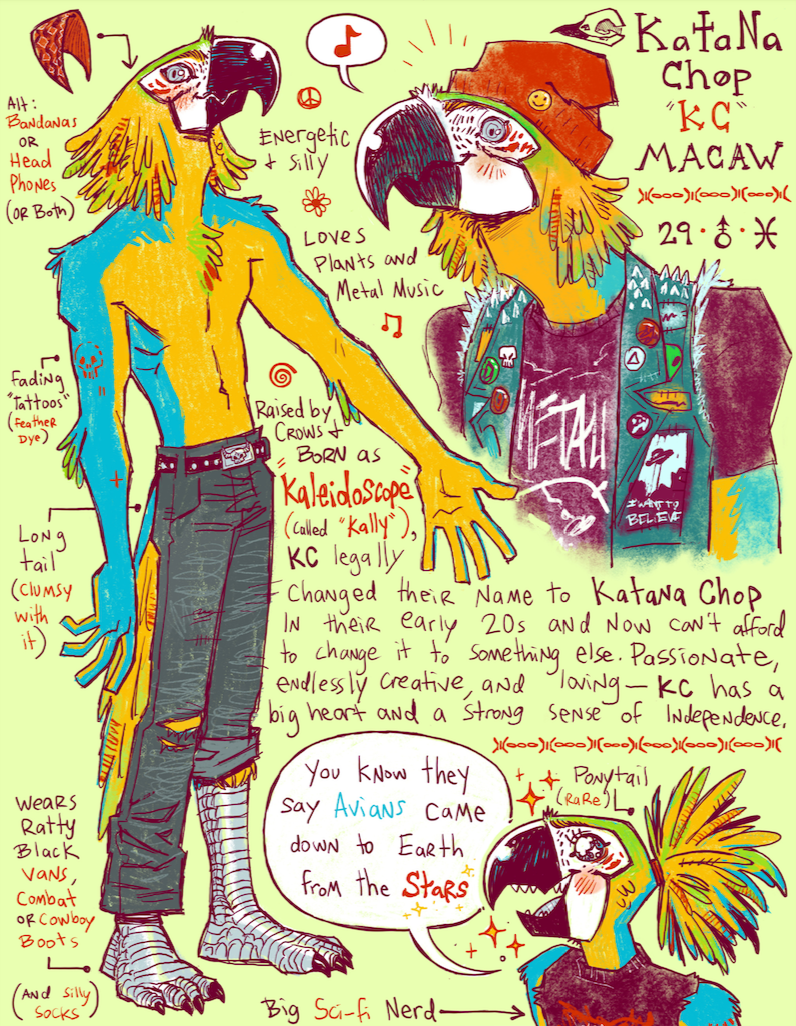 Katana
Chop
"KC"
MACAW
29 · ⚦ · ♓
Alt:
Bandanas
or
Head
Phones
(or Both)
Energetic
+ Silly
Loves
Plants and
Metal Music
Fading
"Tattoos"
(Feather
Dye)
Raised by
Crows +
Born as
"Kaleidoscope"
(called "Kally"),
KC legally
changed their name to Katana Chop
in their early 20s and now can't afford
to change it to something else. Passionate,
endlessly creative, and loving — KC has a
big heart and a strong sense of independence.
METAL
I WANT TO
BELIEVE
Long
tail
(clumsy
with
it)
Wears
Ratty
Black
Vans,
Combat
or Cowboy
Boots
(And silly
socks)
You know they
say Avians came
down to Earth
from the Stars
Ponytail
(Rare)
Big Sci-fi Nerd